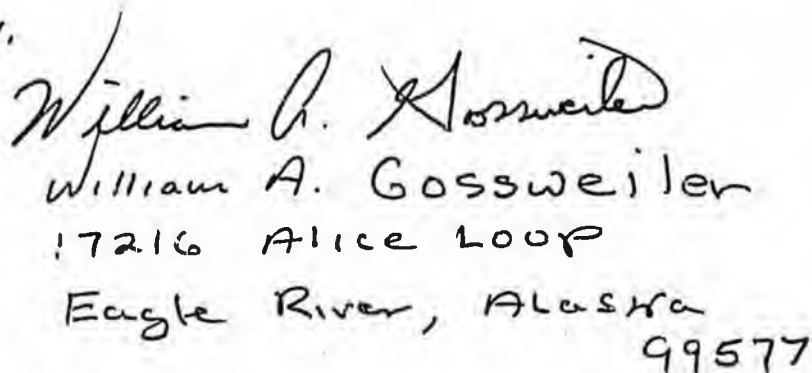 William A. Gossweiler
William A. Gossweiler
17216 Alice Loop
Eagle River, Alaska
99577